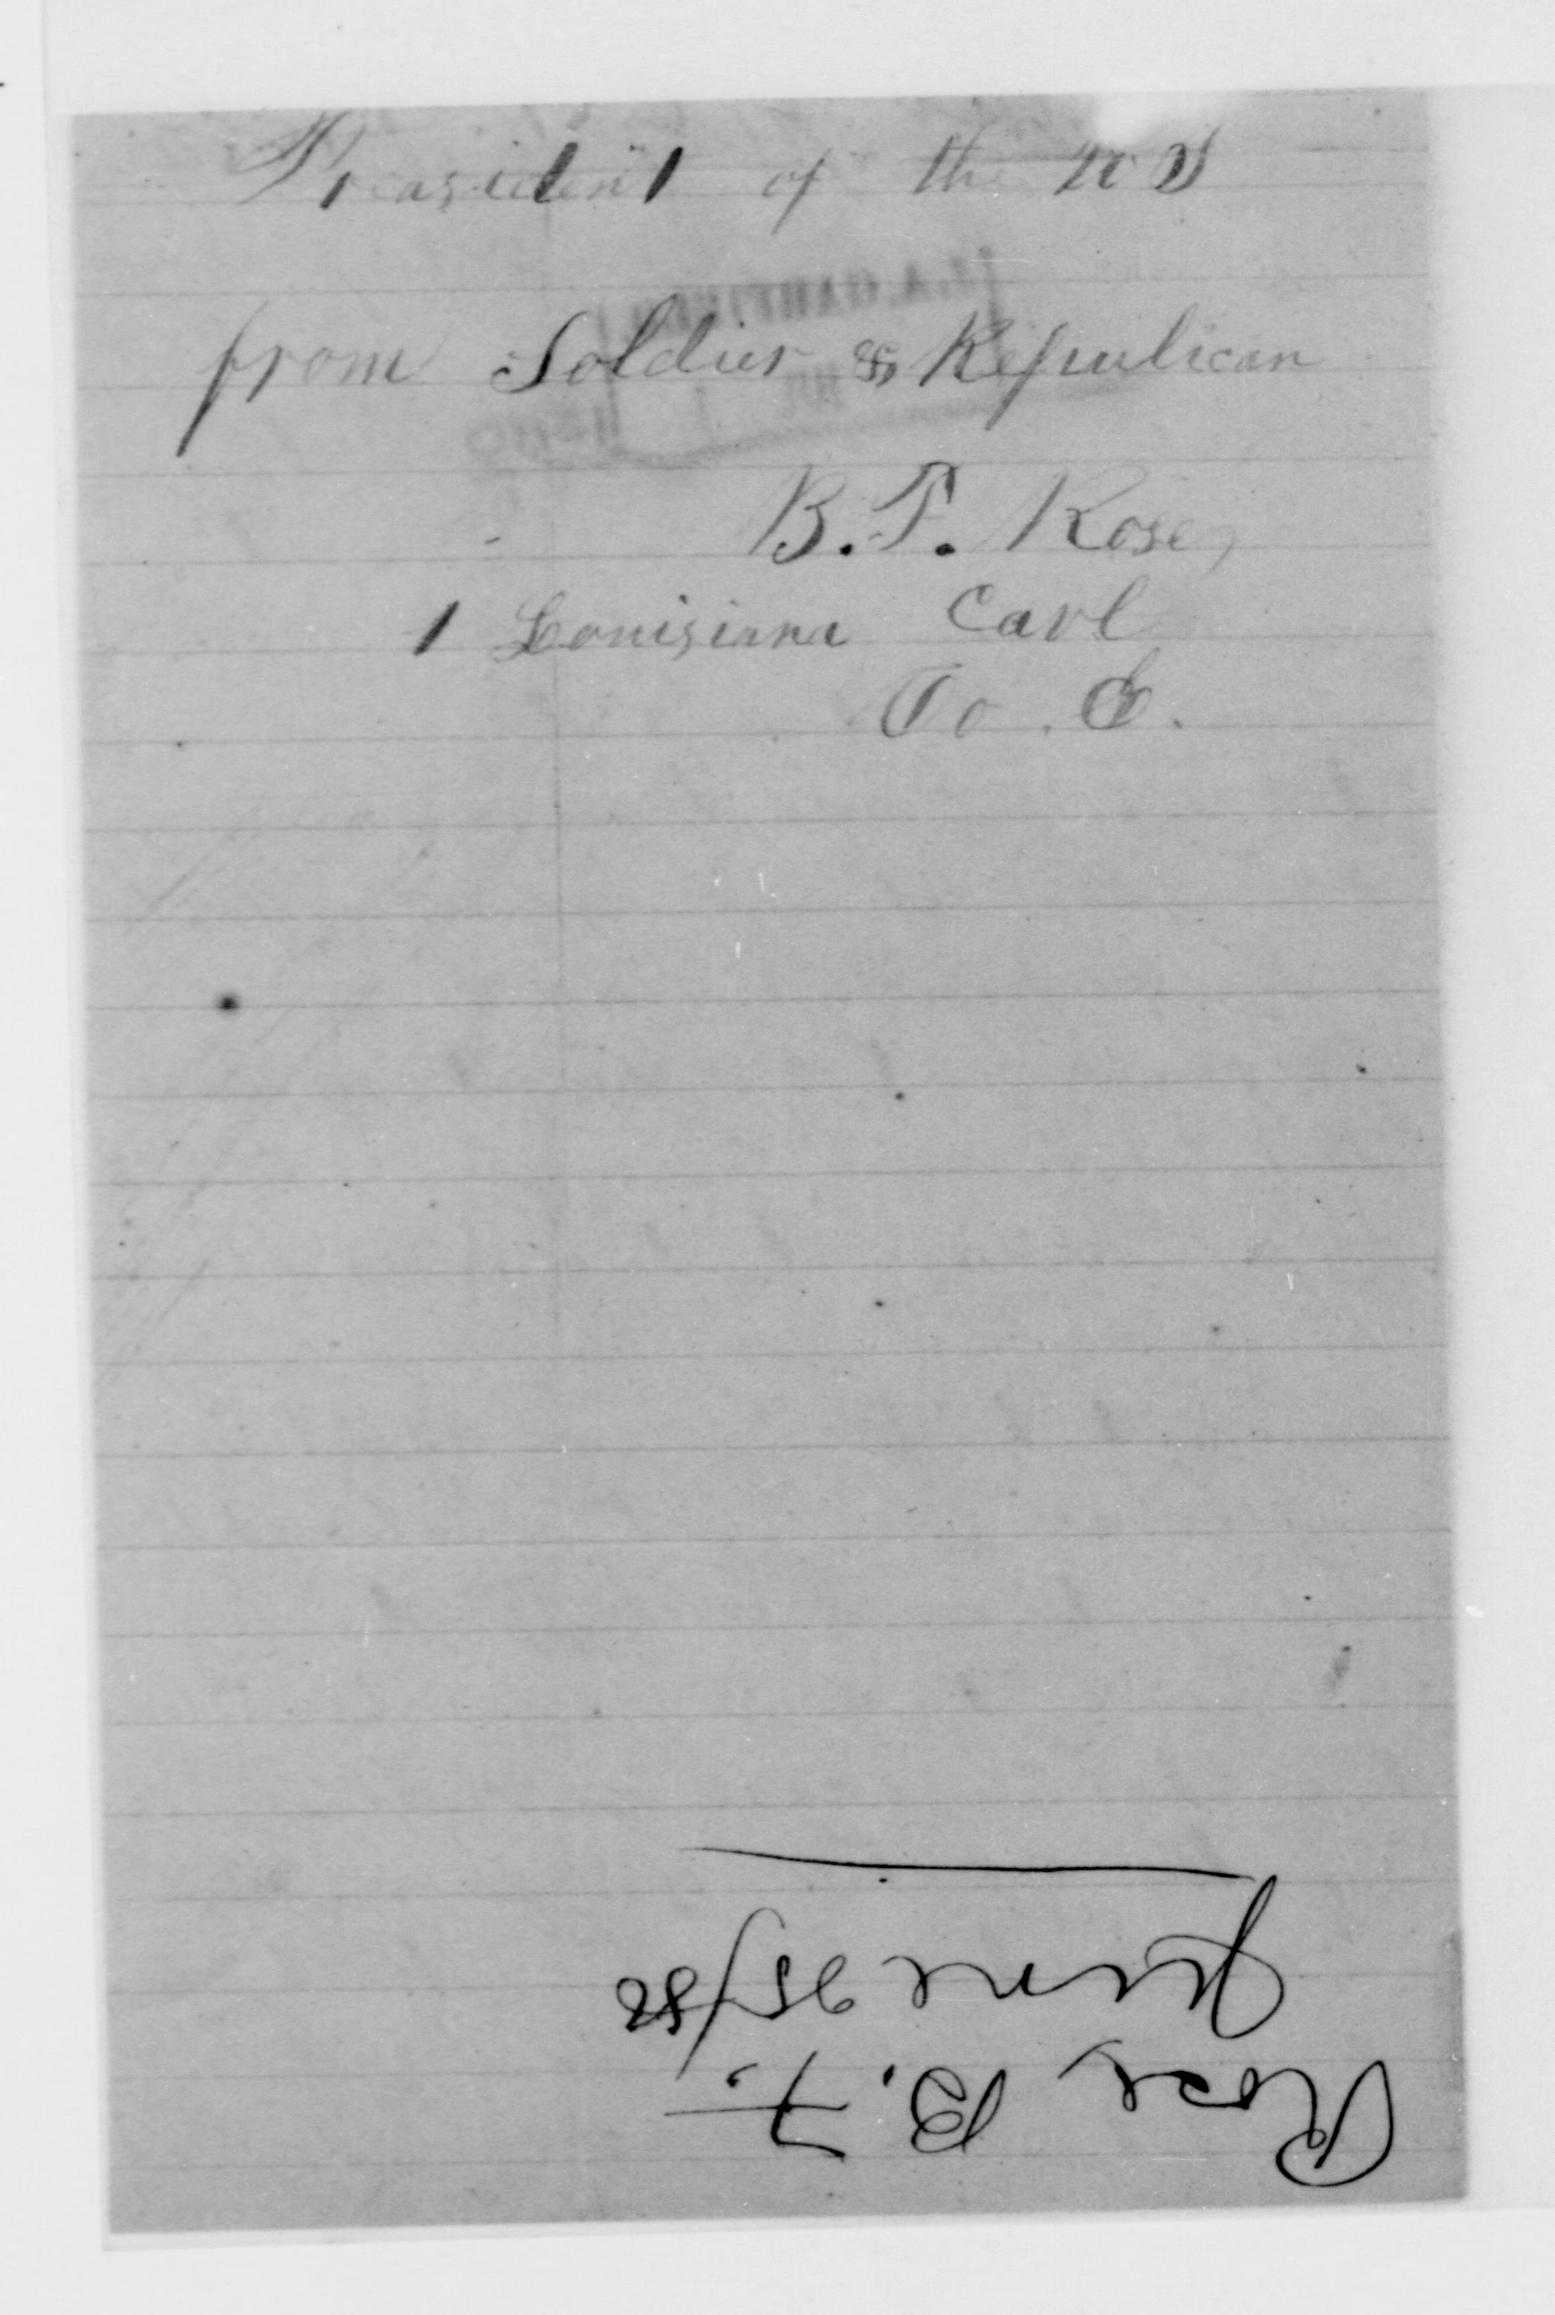 Preasident of the U S
from Soldier & Repulican
B. F. Rose,
1 Louisiana Cavl
Co. E.
Rose, B. F.
June 25/80